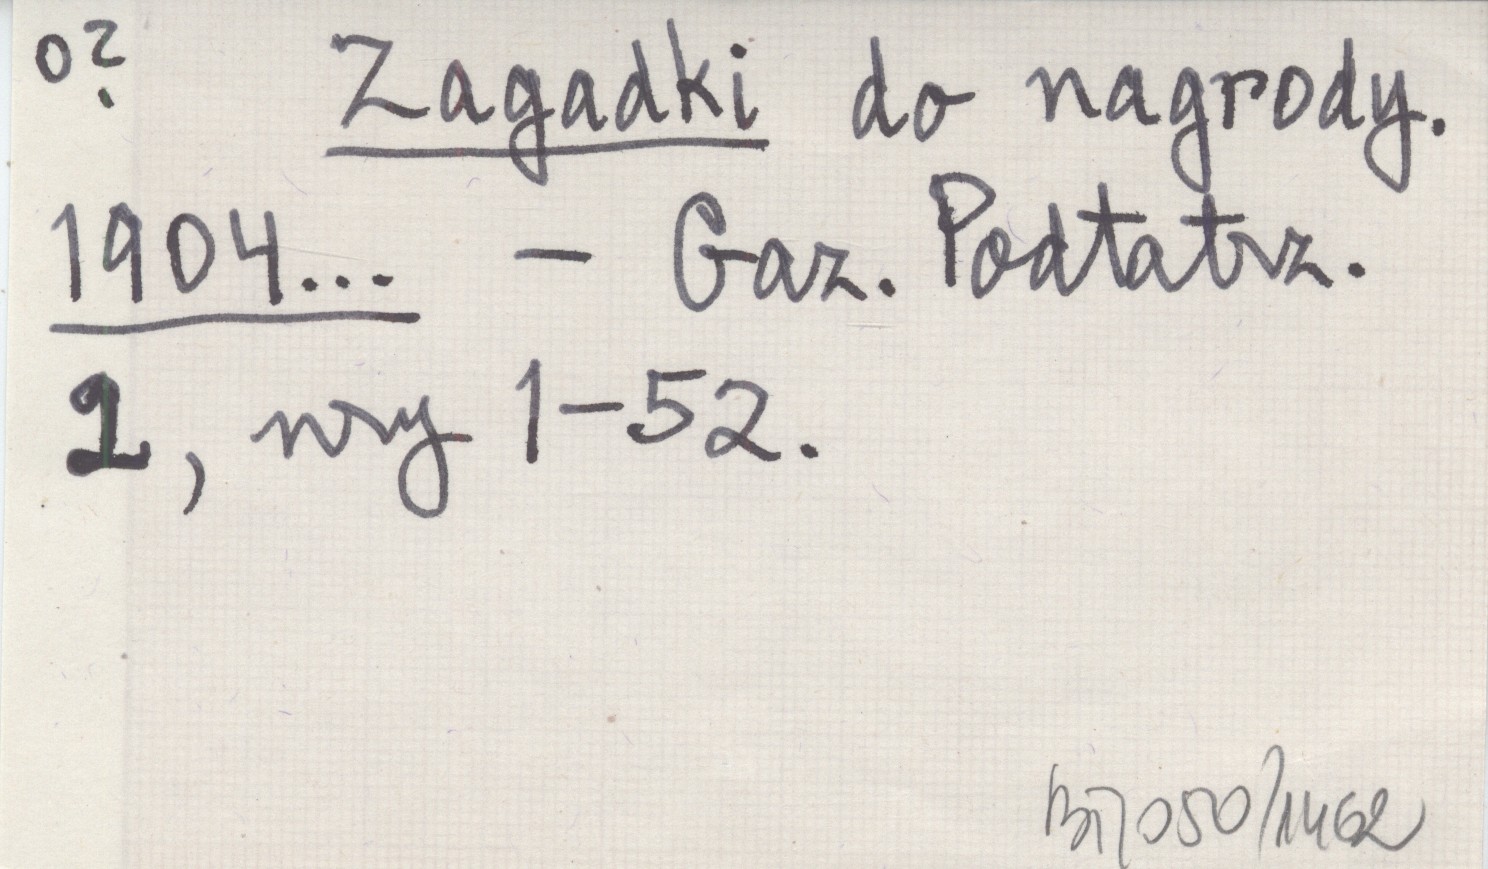 o? Zagadki do nagrody.
1904... – Gaz. Podtatrz.
2, nry 1–52.
050/1462